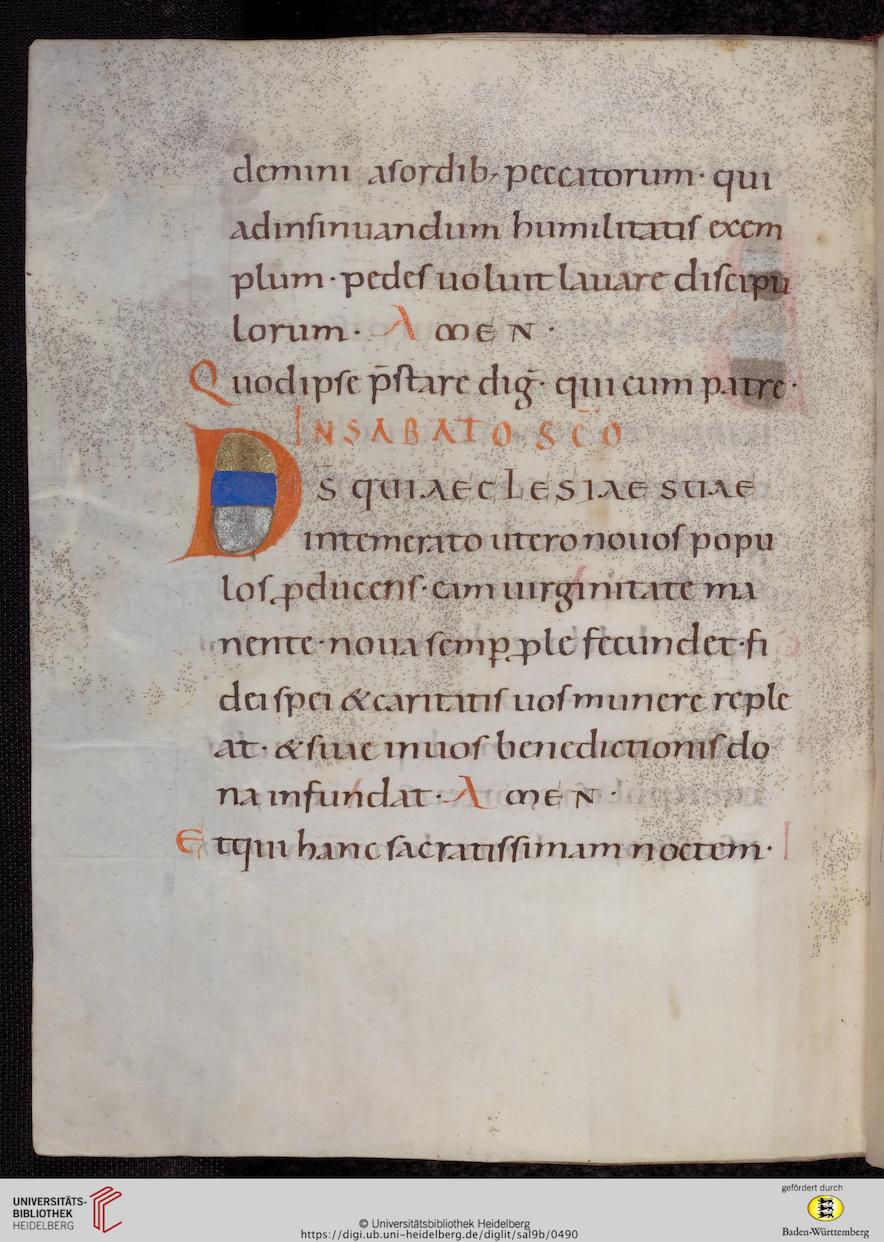 demini asordib; peccatorum· qui
adinsinuandum humilitatis exem
plum· pedes uoluit lauare discipu
lorum· AMEN·
Quodipse p̄stare dig̅· quicum patre·
INSABATO SC̄O
DS̄ QUIAECLESIAE SUAE
intemerato utero nouos popu
los ꝓducens· eam uirginitate ma
nente· noua semꝑ ꝓle fecundet· fi
dei spei &caritatis uos munere reple
at· &suae inuos benedictionis do
na infundat· AMEN·
Etqui hanc sacratissimam noctem·
UNIVERSITÄTS-
BIBLIOTHEK
HEIDELBERG
© Universitätsbibliothek Heidelberg
https://digi.ub.uni-heidelberg.de/diglit/sal9b/0490
gefördert durch
Baden-Württemberg